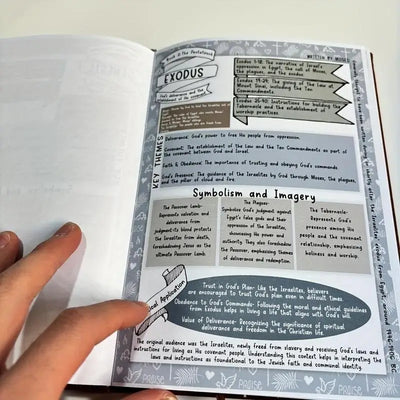 Book 2: The Pentateuch
EXODUS
God's deliverance and the
WRITTEN BY: MOSES
Exodus 1-18: The narrative of Israel's
oppression in Egypt, the call of Moses,
the plagues, and the exodus.
Exodus 19-24: The giving of the law at
Mount Sinai, including the Ten
Commandments.
Exodus 25-40: Instructions for building the
Tabernacle and the establishment of
worship practices
KEY THEMES
Deliverance: God's power to free His people from oppression.
Covenant: The establishment of the Law and the Ten Commandments as part of
the covenant between God and Israel.
Faith & Obedience: The importance of trusting and obeying God's commands.
God's Presence: The guidance of the Israelites by God through Moses, the plagues,
and the pillar of cloud and fire.
Symbolism and Imagery
The Passover Lamb-
Represents salvation and
deliverance from
judgment-its blood protects
the Israelites from death,
foreshadowing Jesus as the
ultimate Passover Lamb.
The Plagues-
Symbolize God's judgment against
Egypt's false gods and the
oppression of the Israelites,
showcasing His power and
authority. They also foreshadow
the Passover, emphasizing themes
of deliverance and redemption.
The Tabernacle-
Represents God's
presence among His
people and the covenant
relationship, emphasizing
holiness and worship.
Application
Trust in God's Plan: Like the Israelites, believers
are encouraged to trust God's plan even in difficult times
Obedience to God's Commands: Following the moral and ethical guidelines
from Exodus helps in living a life that aligns with God's will.
Value of Deliverance: Recognizing the significance of spiritual
deliverance and freedom in the Christian life.
The original audience was the Israelites, newly freed from slavery and receiving God's laws and
instructions for living as His covenant people. Understanding this context helps in interpreting the
laws and instructions as foundational to the Jewish faith and communal identity.
PRAISE
PRAISE